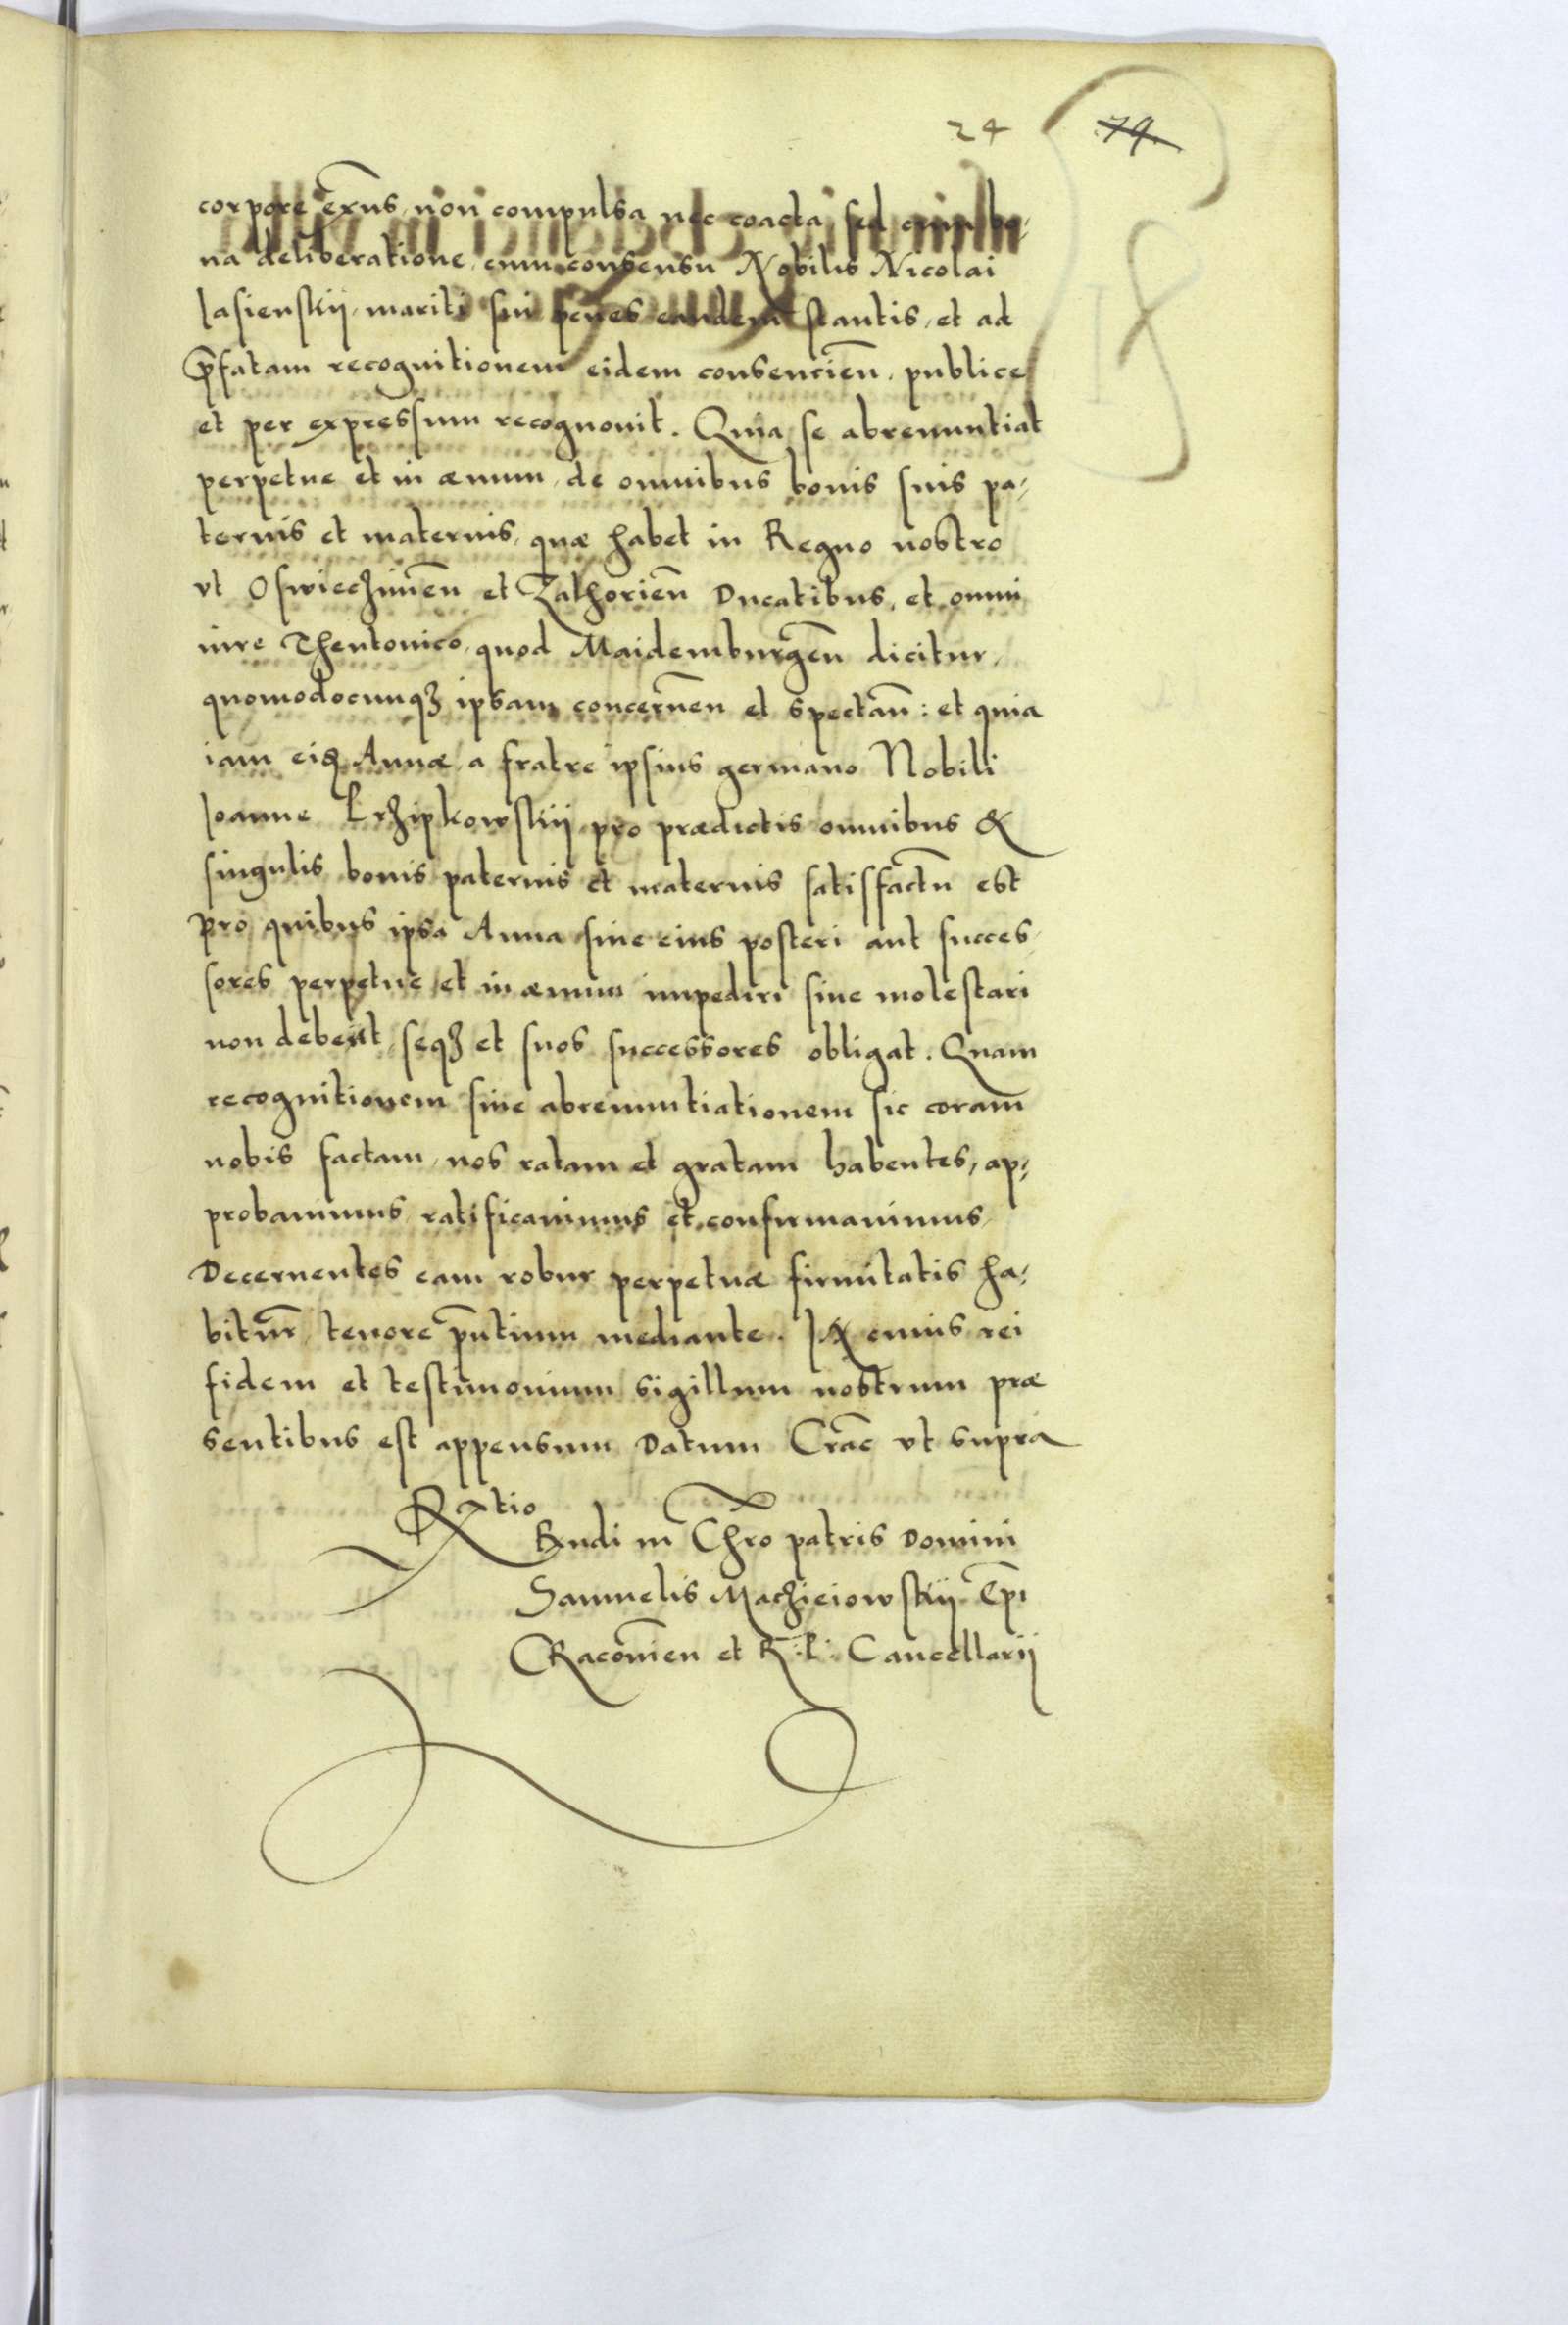 24 79.
corpore exn̄s, non compulsa nec coacta sed cum bo-
na deliberatione, cum consensu Nobilis Nicolai
Iasienskij, mariti sui penes eandem stantis, et ad
p̄fatam recognitionem eidem consencien̄. publice
et per expressum recognouit. Quia se abrenuntiat
perpetue et in æuum, de omnibus bonis suis pa-
ternis et maternis, quæ habet in Regno nostro
vt Oswieczimen̄ et Zathorien̄ Ducatibus, et omni
iure Theutonico, quod Maidemburgen̄ dicitur,
quomodocunqꝫ ipsam concernen̄ et spectan̄: et quia
iam eiꝫ Annæ a fratre ipsius germano Nobili
Ioanne Krzipkowskij pro prædictis omnibus &
singulis bonis paternis et maternis satisfactū est
Pro quibus ipsa Anna siue eius posteri aut succes-
sores perpetue et in æuum impediri siue molestari
non debent, seqꝫ et suos successores obligat. Quam
recognitionem siue abrenuntiationem sic coram
nobis factam, nos ratam et gratam habentes, ap-
probauimus, ratificauimus et confirmauimus,
Decernentes eam robur perpetuæ firmitatis ha-
bitur̄, tenore p̄ntium mediante. In cuius rei
fidem et testimonium sigillum nostrum præ
sentibus est appensum Datum Crac̄ vt supra
R̄tio
Rndi in Chr̄o patris Domini
Samuelis Macziciowskij Ep̄i
CRacouien̄ et R: P: Cancellarij